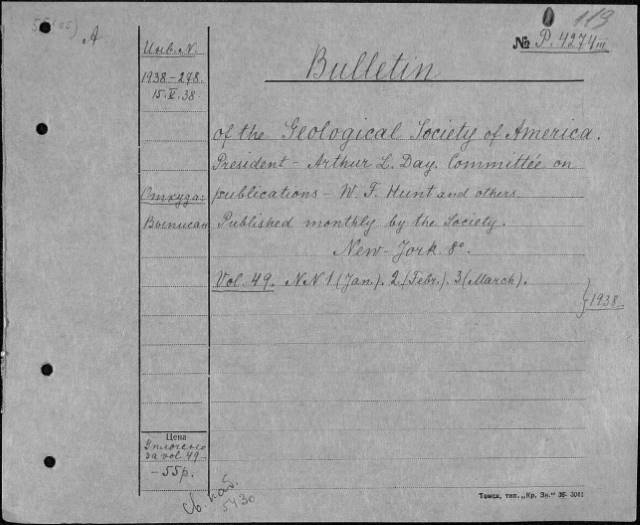 55(05) A
0 119
№ P. 4274 III
Инв. N.
1938-278.
15.V.38.
Bulletin
of the Geological Society of America.
President - Arthur L. Day. Committée on
Откуда:
publications - W. F. Hunt and others.
Выписан
Published monthly by the Society.
New-York. 8º.
Vol. 49. NN 1 (Jan.). 2 (Febr.). 3 (March).
} 1938.
Цена
Уплочено
за vol. 49
- 55р.
св. каб.
5430
Томск, тип. „Кр. Зн.“ 35- 3081